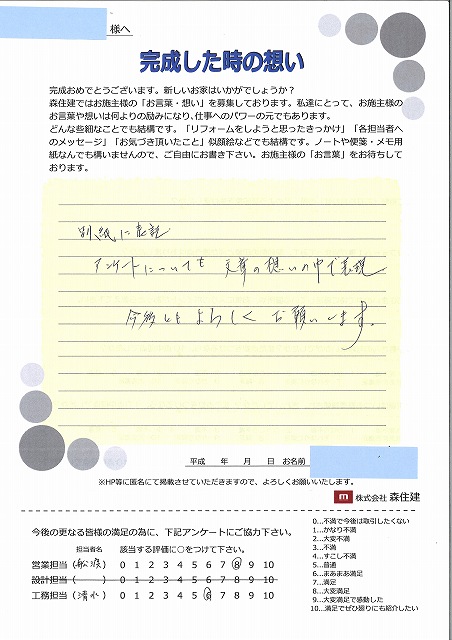 様へ
完成した時の想い
完成おめでとうございます。新しいお家はいかがでしょうか?
森住建ではお施主様の「お言葉・想い」を募集しております。私達にとって、お施主様の
お言葉や想いは何よりの励みになり、仕事へのパワーの元でもあります。
どんな些細なことでも結構です。「リフォームをしようと思ったきっかけ」「各担当者へ
のメッセージ」「お気づき頂いたこと」似顔絵などでも結構です。ノートや便箋・メモ用
紙なんでも構いませんので、ご自由にお書き下さい。お施主様の「お言葉」をお待ちして
おります。
別紙に表記
アンケートについても 文章の想いの中で表現
今後ともよろしくお願いします。
平成 年 月 日 お名前
※HP等に匿名にて掲載させていただきますので、よろしくお願いいたします。
m 株式会社 森住建
今後の更なる皆様の満足の為に、下記アンケートにご協力下さい。
担当者名 該当する評価に○をつけて下さい。
営業担当 ( ) 0 1 2 3 4 5 6 7 8 9 10
設計担当 ( ) 0 1 2 3 4 5 6 7 8 9 10
工務担当 (清水) 0 1 2 3 4 5 6 7 8 9 10
0…不満で今後は取引したくない
1…かなり不満
2…大変不満
3…不満
4…すこし不満
5…普通
6…まあまあ満足
7…満足
8…大変満足
9…大変満足で感動した
10…満足でぜひ廻りにも紹介したい